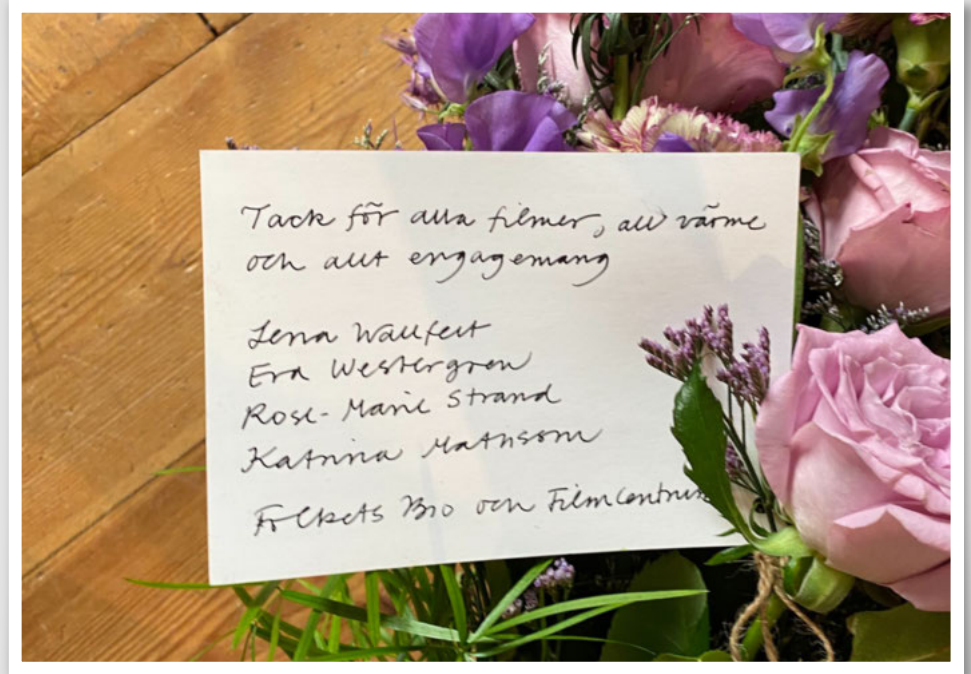 Tack för alla filmer, all värme
och allt engagemang
Lena Wallfelt
Eva Westergren
Rose-Marie Strand
Katrina Mathsson
Folkets Bio och FilmCentrum